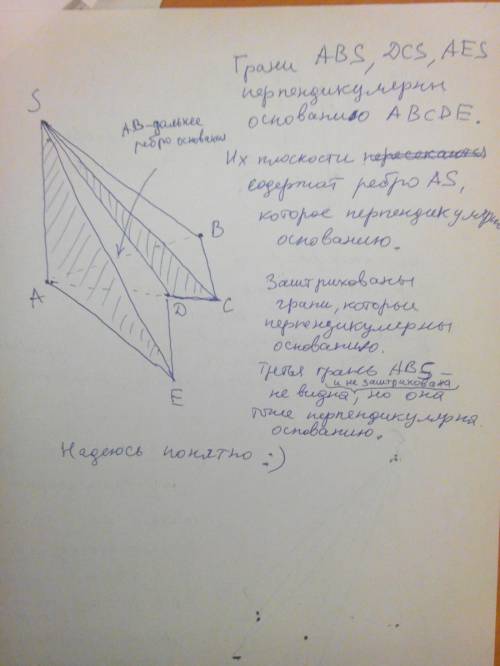 Грани ABS, DCS, AES
перпендикулярны
основанию ABCDE.
Их плоскости пересекаются
содержат ребро AS,
которое перпендикулярно
основанию.
S
AB-дальнее
ребро основания
B
A
D
C
E
Заштрихованы
грани, которые
перпендикулярны
основанию.
Третья грань ABS –
и не заштрихована
не видна, но она
тоже перпендикулярна
основанию.
Надеюсь понятно :)